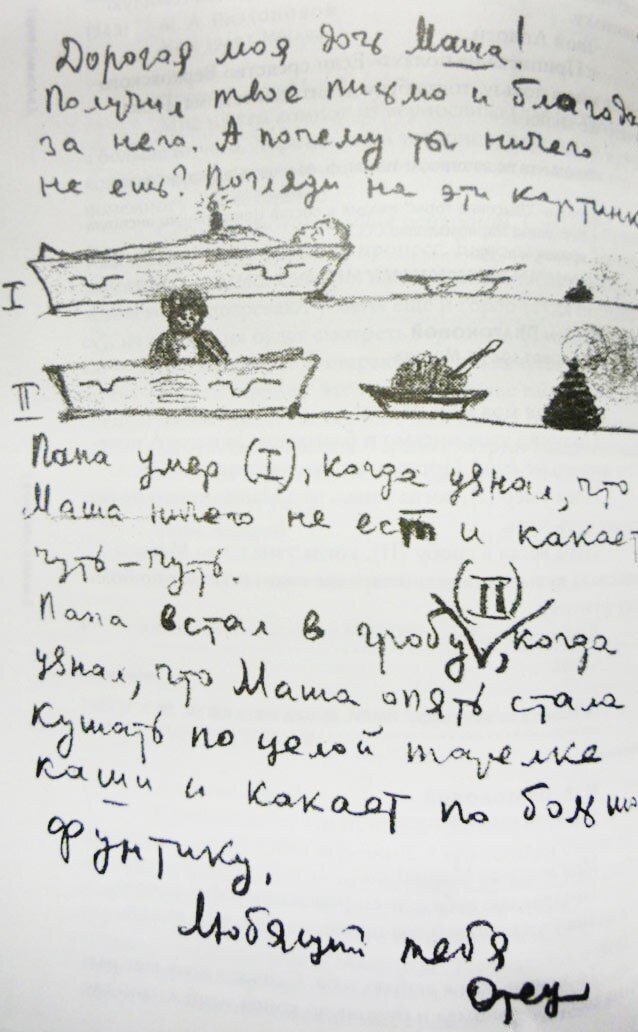 Дорогая моя дочь Маша!
Получил твое письмо и благода
за него. А почему ты ничего
не ешь? Погляди на эти картинк
I
II
Папа умер (I), когда узнал, что
Маша ничего не ест и какает
чуть-чуть
(II)
Папа встал в гробу, когда
узнал, что Маша опять стала
кушать по целой тарелке
каши и какает по больш
фунтику,
Любящий тебя
Отец